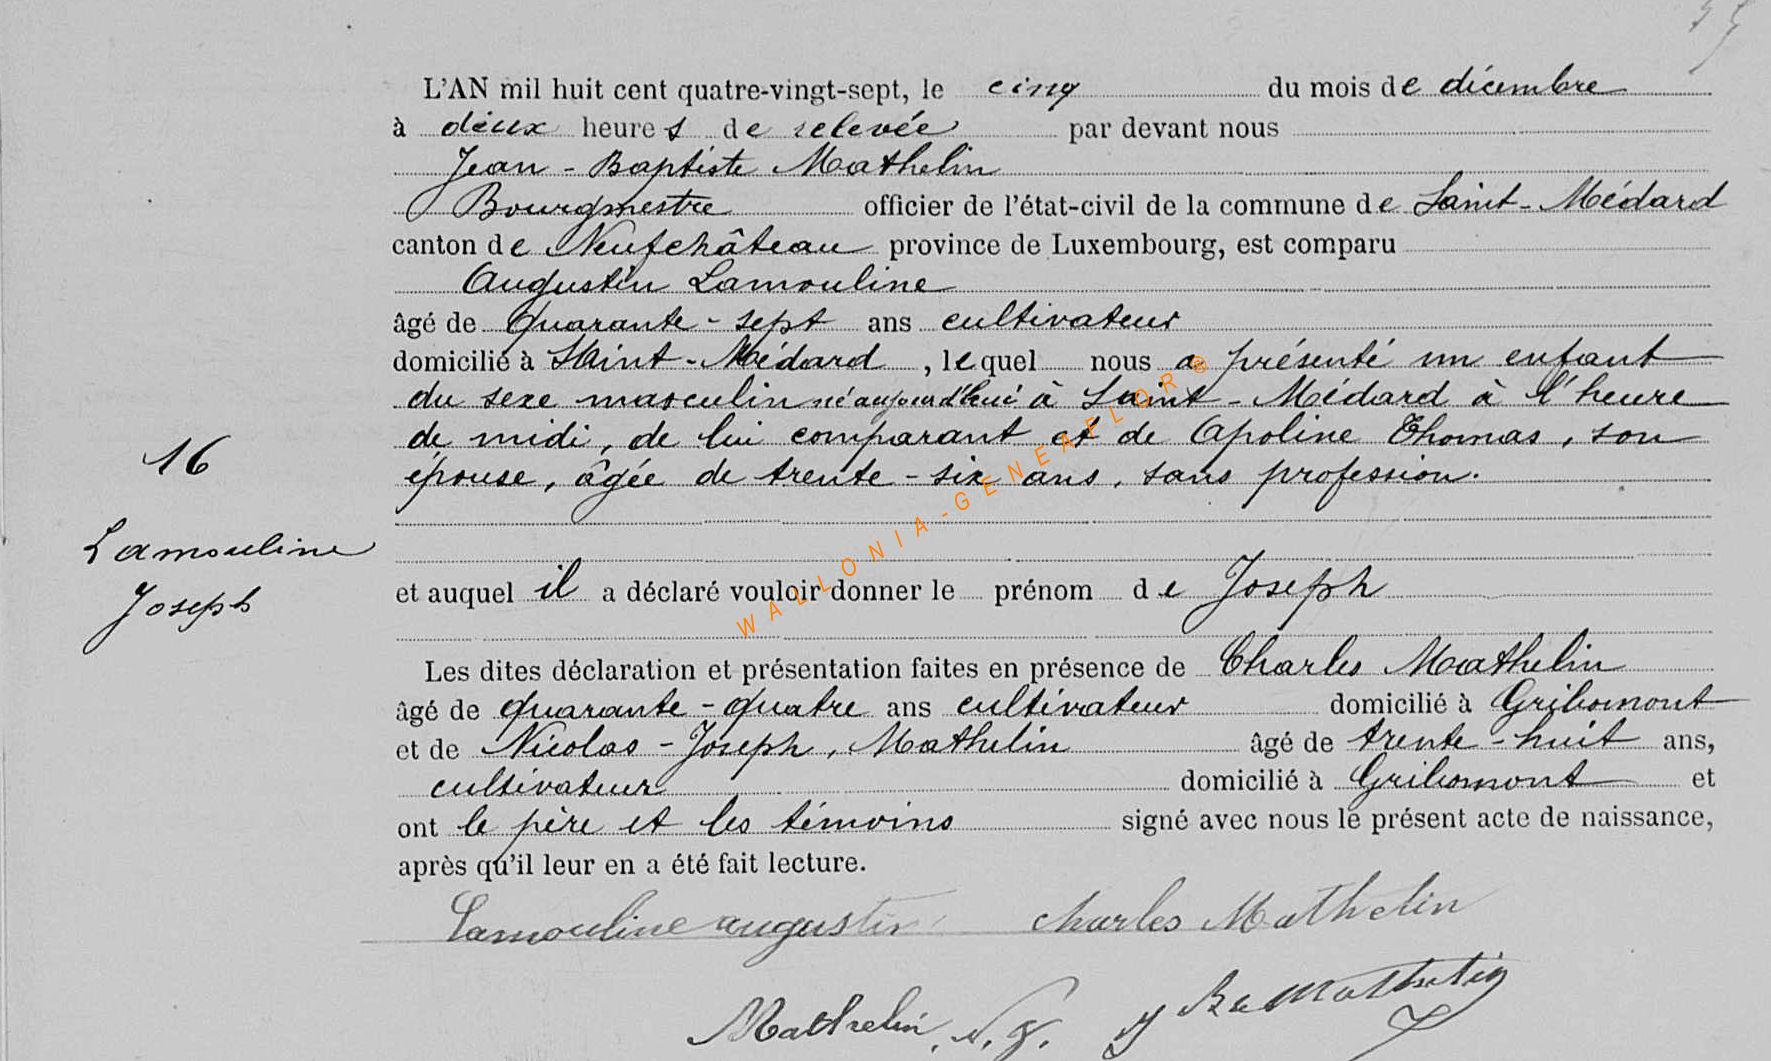 L'AN mil huit cent quatre-vingt-sept, le cinq du mois de décembre
à deux heures de relevée par devant nous
Jean-Baptiste Mathelin
Bourgmestre officier de l'état-civil de la commune de Saint-Médard
canton de Neufchâteau province de Luxembourg, est comparu
Augustin Lamouline
âgé de quarante-sept ans cultivateur
domicilié à Saint-Médard, lequel nous a présenté un enfant
du sexe masculin né aujourd'hui à Saint-Médard à l'heure
de midi, de lui comparant et de Apoline Thomas, son
épouse, âgée de trente-six ans, sans profession.
16
Lamouline
Joseph
et auquel il a déclaré vouloir donner le prénom de Joseph
Les dites déclaration et présentation faites en présence de Charles Mathelin
âgé de quarante-quatre ans cultivateur domicilié à Gribomont
et de Nicolas-Joseph, Mathelin âgé de trente-huit ans,
cultivateur domicilié à Gribomont et
ont le père et les témoins signé avec nous le présent acte de naissance,
après qu'il leur en a été fait lecture.
Lamouline augustin Charles Mathelin
Mathelin, N. J. J Bte Mathelin
WALLONIA-GENEAFLOR®